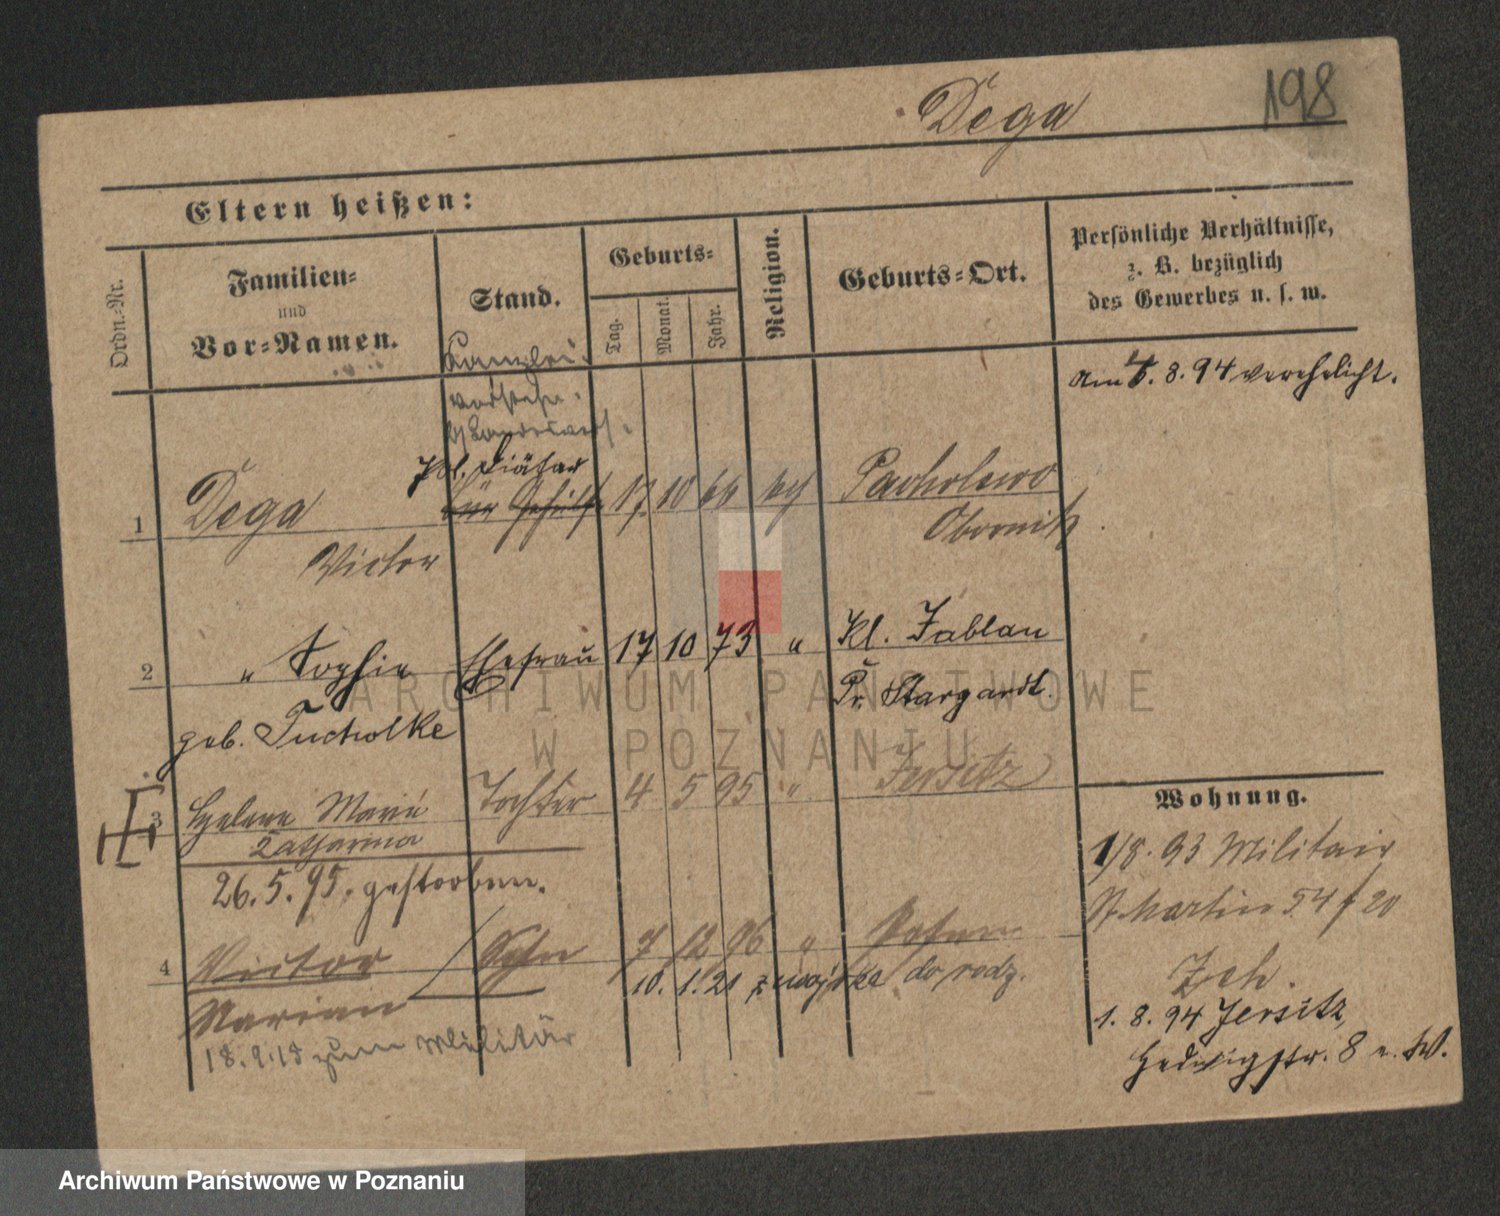 Dega 198
Eltern heißen:
Ordn.-Nr.
Familien-
und
Vor-Namen.
Stand.
Geburts-
Tag.
Monat.
Jahr.
Religion.
Geburts-Ort.
Persönliche Verhältnisse,
z. B. bezüglich
des Gewerbes u. s. w.
Kanzlei-
vorsteher
Diätar
Bür Gehülfe
am 4. 8. 94 verehelicht.
1 Dega 17 10 66 kth Pacholewo
Victor Obornik
2 " Sophie Ehefrau 17 10 73 " Kl. Jablau
geb. Tucholke Pr. Stargardt.
3 Helene Marie Tochter 4 5 95 " Jersitz
Katharina
26. 5. 95. gestorben.
4 Victor Sohn 7 12 96 " Posen
Marian
10. 1. 21 z wojska do rodz.
18. 9. 18 zum Militär
Wohnung.
1/8. 93 Militair
St. Martin 54 f 20
1. 8. 94 Jersitz,
Hedwigstr. 8 e. W.
ARCHIWUM PAŃSTWOWE
W POZNANIU
Archiwum Państwowe w Poznaniu